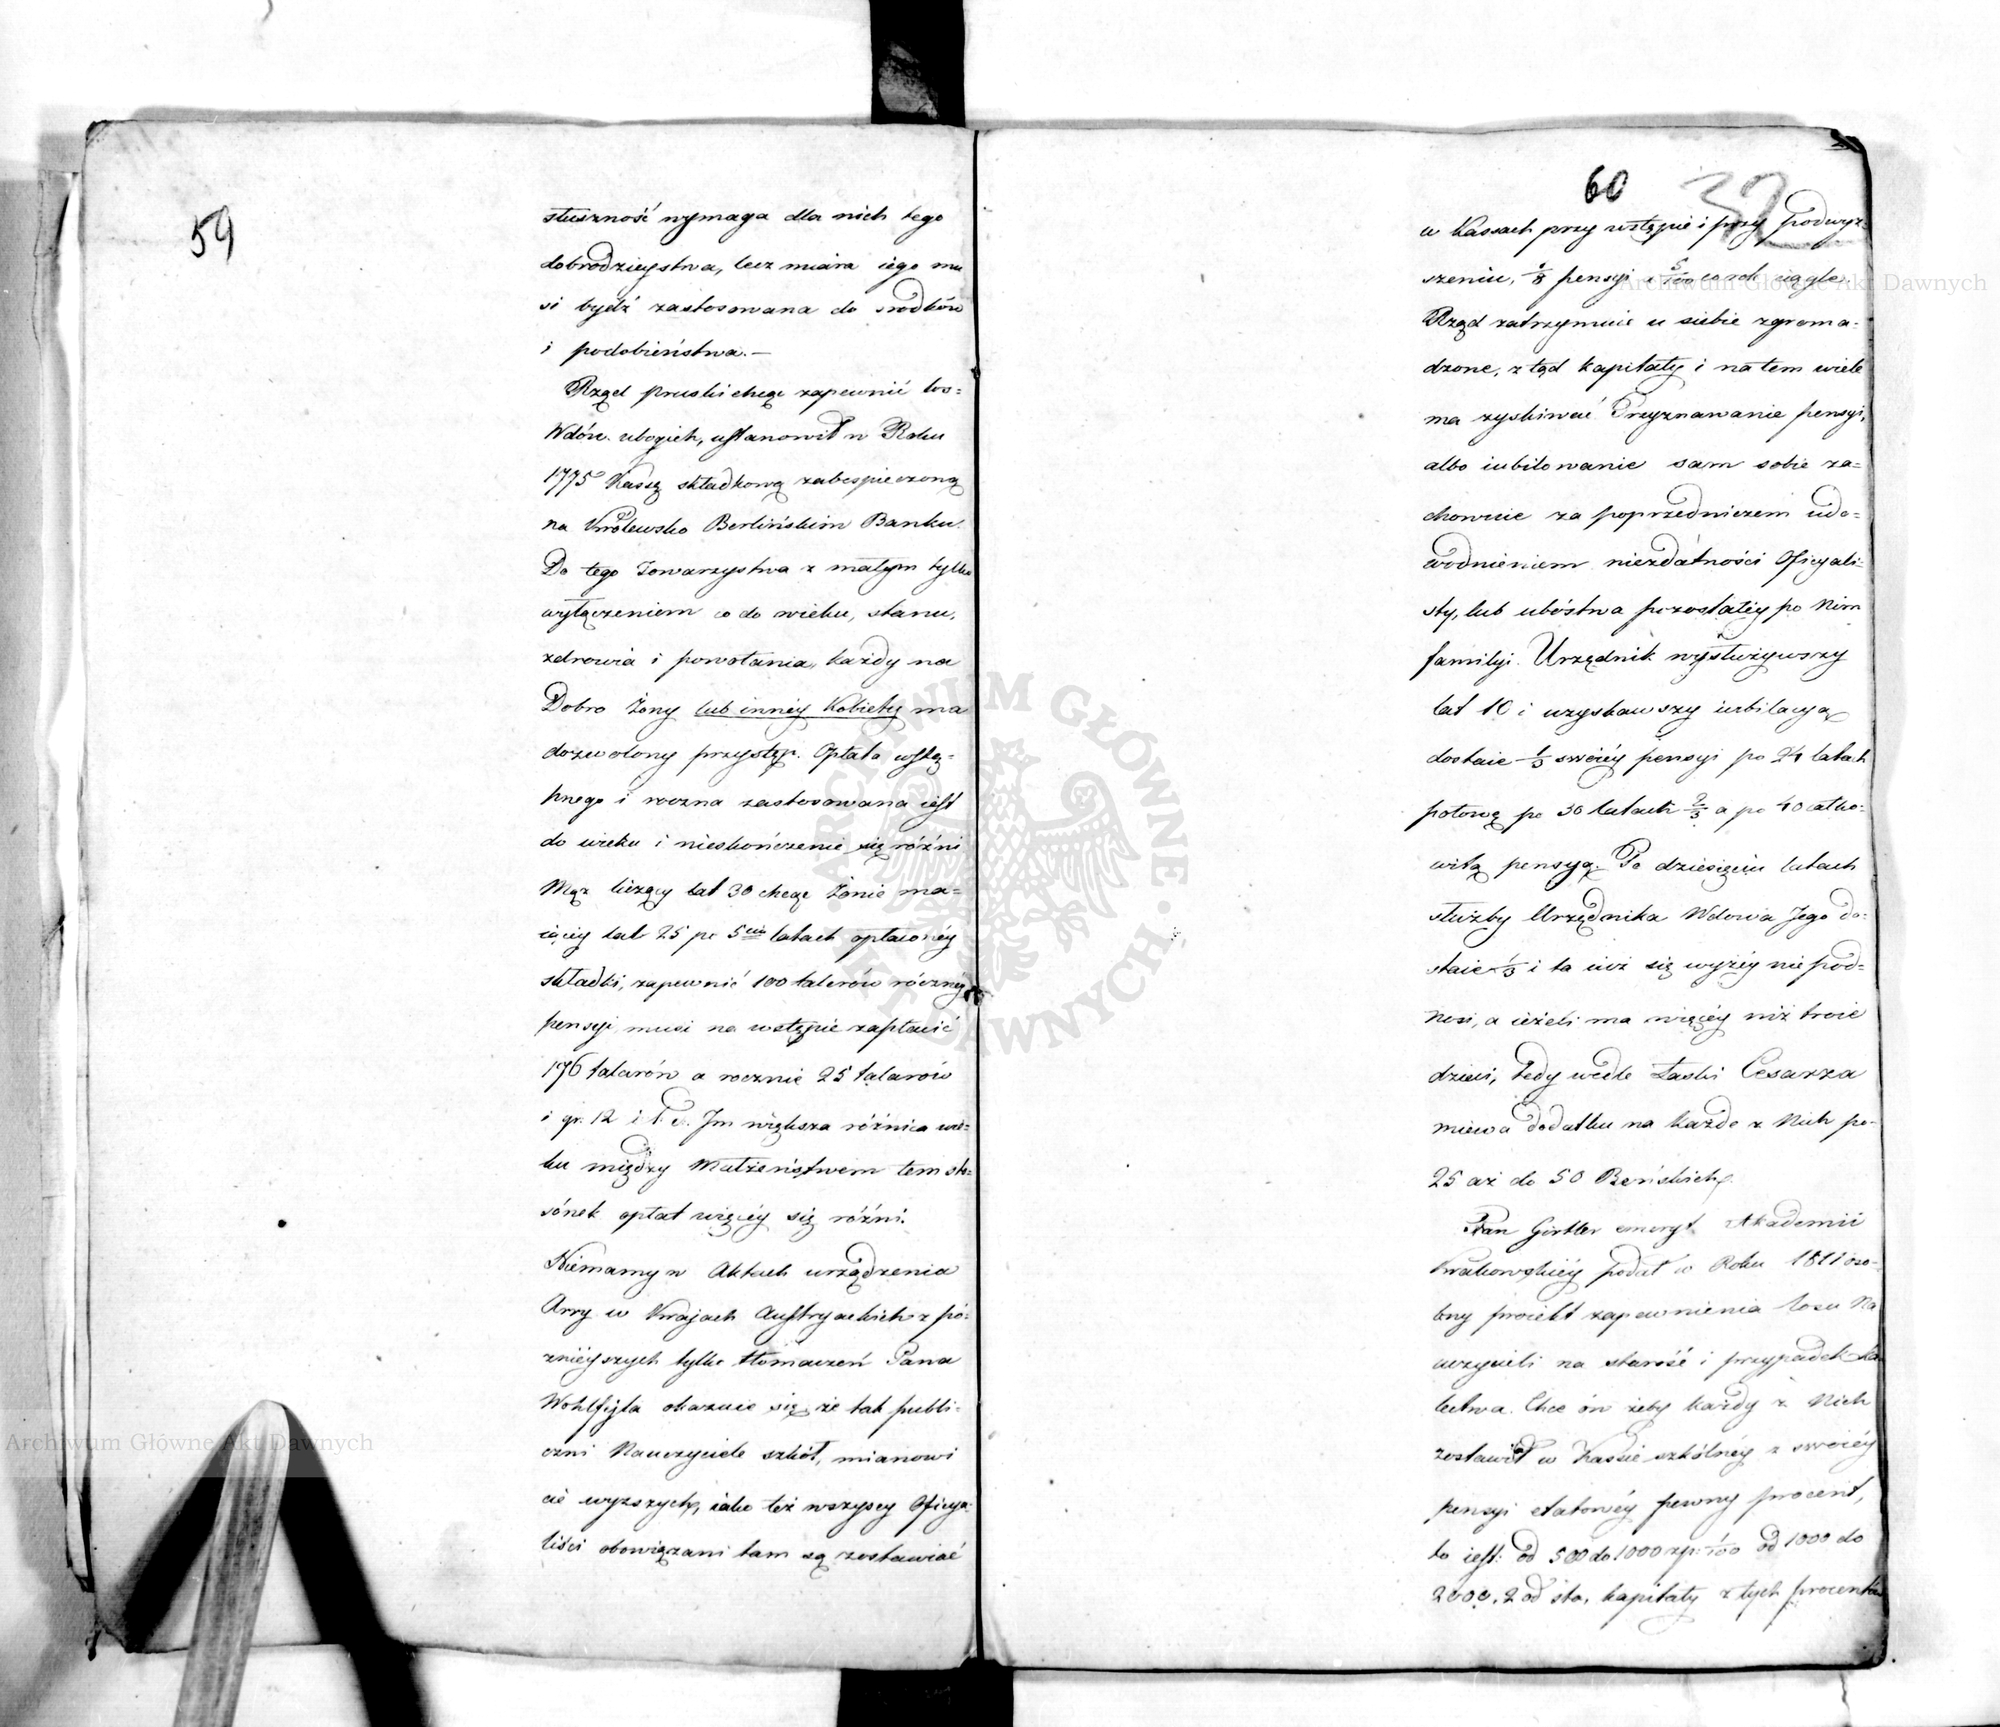 59
słuszność wymaga dla nich tego
dobrodzieystwa, lecz miara iego mu
si bydź zastosowana do srodków
i podobieństwa. —
Rząd pruski chcąc zapewnić los=
Wdów ubogich, ustanowił w Roku
1775 Kassę składkową zabespieczoną
na Krolewsko Berlińskim Banku.
Do tego Towarzystwa z małym tylko
wyłączeniem co do wieku, stanu,
zdrowia i powołania, każdy na
Dobro Żony lub inney Kobiety ma
dozwolony przystęp. Opłata wstę=
pnego i roczna zastosowana iest
do wieku i nieskończenie się różni
Mąz liczący lat 30 chcąc Żonie ma=
iącey lat 25 po 5ciu latach opłaconéy
składki, zapewnić 100 talerów rócznéy
pensyi musi na wstępie zapłacić
176 talarów a rocznie 25 talarów
i gr. 12 i t. d. Im większa różnica wie=
ku między Małżeństwem tem sto=
sónek opłat więcéy się różni.
Niemamy w Aktach urządzenia
Arry w Krajach Austryackich z pó=
źniéyszych tylko tłómaczeń Pana
Wohlfejla okazuie się, że tak publi=
czni Nauczyciele szkół, mianowi
cie wyzszych, iako też wszyscy Oficya=
liści obowiązani tam są zostawiać
60
32
w Kassach przy wstępie i przy podwyż=
szeniu, 1/8 pensyi i 5/100 co rok ciągle.
Rząd zatrzymuie u siebie zgroma=
dzone, z tąd kapitały i na tem wiele
ma zyskiwać Przyznawanie pensyi,
albo iubilowanie sam sobie za=
chowuie za poprzedniczem udo=
wodnieniem niezdatności Oficyali=
sty, lub ubóstwa pozostałéy po Nim
familyi. Urzędnik wysłużywszy
lat 10 i uzyskawszy iubilacyą
dostaie 1/3 swoiéy pensyi po 24 latach
połowę po 30 latach 2/3 a po 40 całko=
witą pensyą. Po dziesięciu latach
służby Urzędnika Wdowa Jego do=
staie 1/3 i ta iuż się wyżéy nie pod=
nosi, a ieżeli ma więcéy niż troie
dzieci, tedy wedle Łaski Cesarza
miewa dodatku na każde z Nich po=
25 aż do 50 Reńskich.
Pan Girtler emeryt Akademii
Krakowskiéy podał w Roku 1811 oso=
bny proiekt zapewnienia losu Na
uczycieli na starość i przypadek ka
lectwa. Chce ón żeby każdy z Nich
zostawiał w Kassie szkólnéy z swoiéy
pensyi etatowéy pewny procent,
to iest: od 500 do 1000 zp: 1/100 od 1000 do
2000, 2 od sta, kapitały z tych procentów
Archiwum Główne Akt Dawnych
Archiwum Główne Akt Dawnych
ARCHIWUM GŁÓWNE AKT DAWNYCH